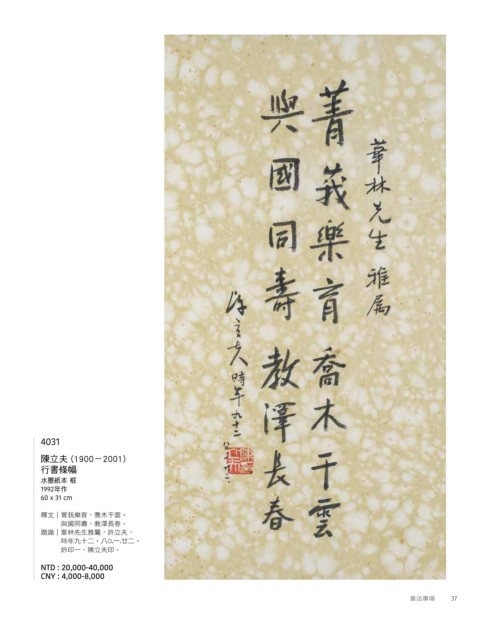 華林先生雅屬
菁莪樂育喬木干雲
與國同壽教澤長春
時年九十二
4031
陳立夫 (1900－2001)
行書條幅
水墨紙本 框
1992年作
60 x 31 cm
釋文｜菁莪樂育，喬木干雲。
與國同壽，教澤長春。
題識｜華林先生雅屬，許立夫，
時年九十二。八〇.一.廿二。
鈐印一，陳立夫印。
NTD : 20,000-40,000
CNY : 4,000-8,000
書法專場 37